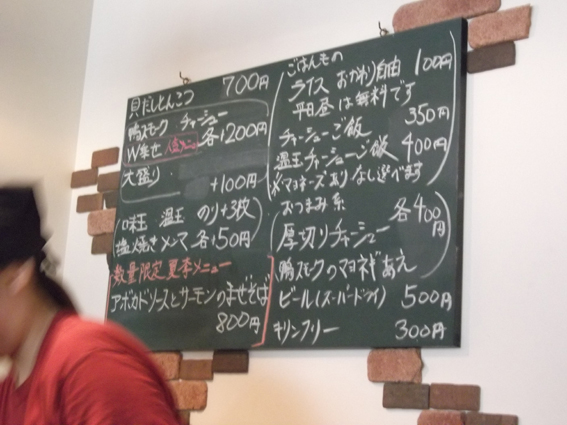 貝だしとんこつ 700円
鴨スモーク チャーシュー
W乗せ 各+200円
大盛り +100円
味玉 温玉 のり+3枚
塩焼きメンマ 各+150円
数量限定 夏季メニュー
アボカドソースとサーモンのまぜそば
800円
ごはんもの
ライス おかわり自由 100円
平日昼は無料です
チャーシューご飯 350円
温玉チャーシューご飯 400円
※マヨネーズあり なし選べます
おつまみ系
厚切りチャーシュー 各400円
鴨スモークのマヨネギあえ
ビール(スーパードライ) 500円
キリンフリー 300円